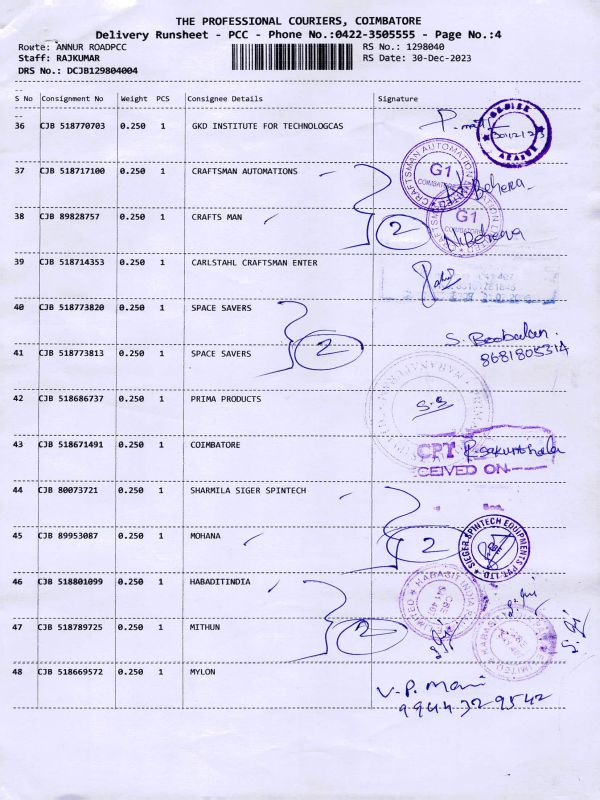 THE PROFESSIONAL COURIERS, COIMBATORE
Delivery Runsheet - PCC - Phone No.:0422-3505555 - Page No.:4
Route: ANNUR ROADPCC RS No.: 1298040
Staff: RAJKUMAR RS Date: 30-Dec-2023
DRS No.: DCJB129804004
S No Consignment No Weight PCS Consignee Details Signature
36 CJB 518770703 0.250 1 GKD INSTITUTE FOR TECHNOLOGCAS
37 CJB 518717100 0.250 1 CRAFTSMAN AUTOMATIONS
CRAFTSMAN AUTOMATION LIMITED
G1
COIMBATORE
Behera
38 CJB 89828757 0.250 1 CRAFTS MAN 2
G1
N.Behera
39 CJB 518714353 0.250 1 CARLSTAHL CRAFTSMAN ENTER
40 CJB 518773820 0.250 1 SPACE SAVERS
2 S. Boobalan.
41 CJB 518773813 0.250 1 SPACE SAVERS 8681805314
42 CJB 518686737 0.250 1 PRIMA PRODUCTS S.S
43 CJB 518671491 0.250 1 COIMBATORE CPT R.Sakunthala
CEIVED ON
44 CJB 80073721 0.250 1 SHARMILA SIGER SPINTECH
45 CJB 89953087 0.250 1 MOHANA 2
SIEGER SPINTECH EQUIPMENTS PVT. LTD
CBE
46 CJB 518801099 0.250 1 HABADITINDIA
HABASIT INDIA LIMITED
CBE
47 CJB 518789725 0.250 1 MITHUN 2
48 CJB 518669572 0.250 1 MYLON V.P. Mani
9944329542